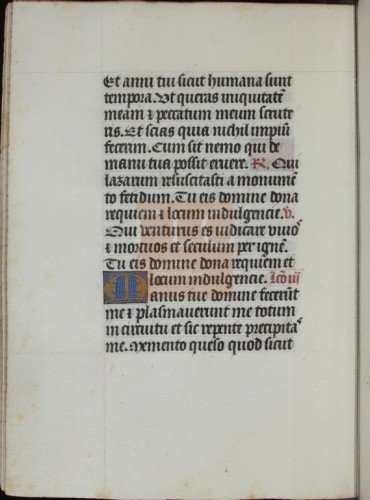 Et anni tui sicut humana sunt
tempora. Ut queras iniquitatē
meam ⁊ peccatum meum scrute
ris. Et scias quia nichil impiū
fecerim. Cum sit nemo qui de
manu tua possit eruere. R. Qui
lazarum resuscitasti a monumē
to fetidum. Tu eis domine dona
requiem ⁊ locum indulgencie. V.
Qui venturus es iudicare vivos
⁊ mortuos et seculum per ignē.
Tu eis domine dona requiem et
locum indulgencie. Lcō iii
Manus tue domine fecerūt
me ⁊ plasmaverunt me totum
in circuitu et sic repente precipitas
me. Memento queso quod sicut